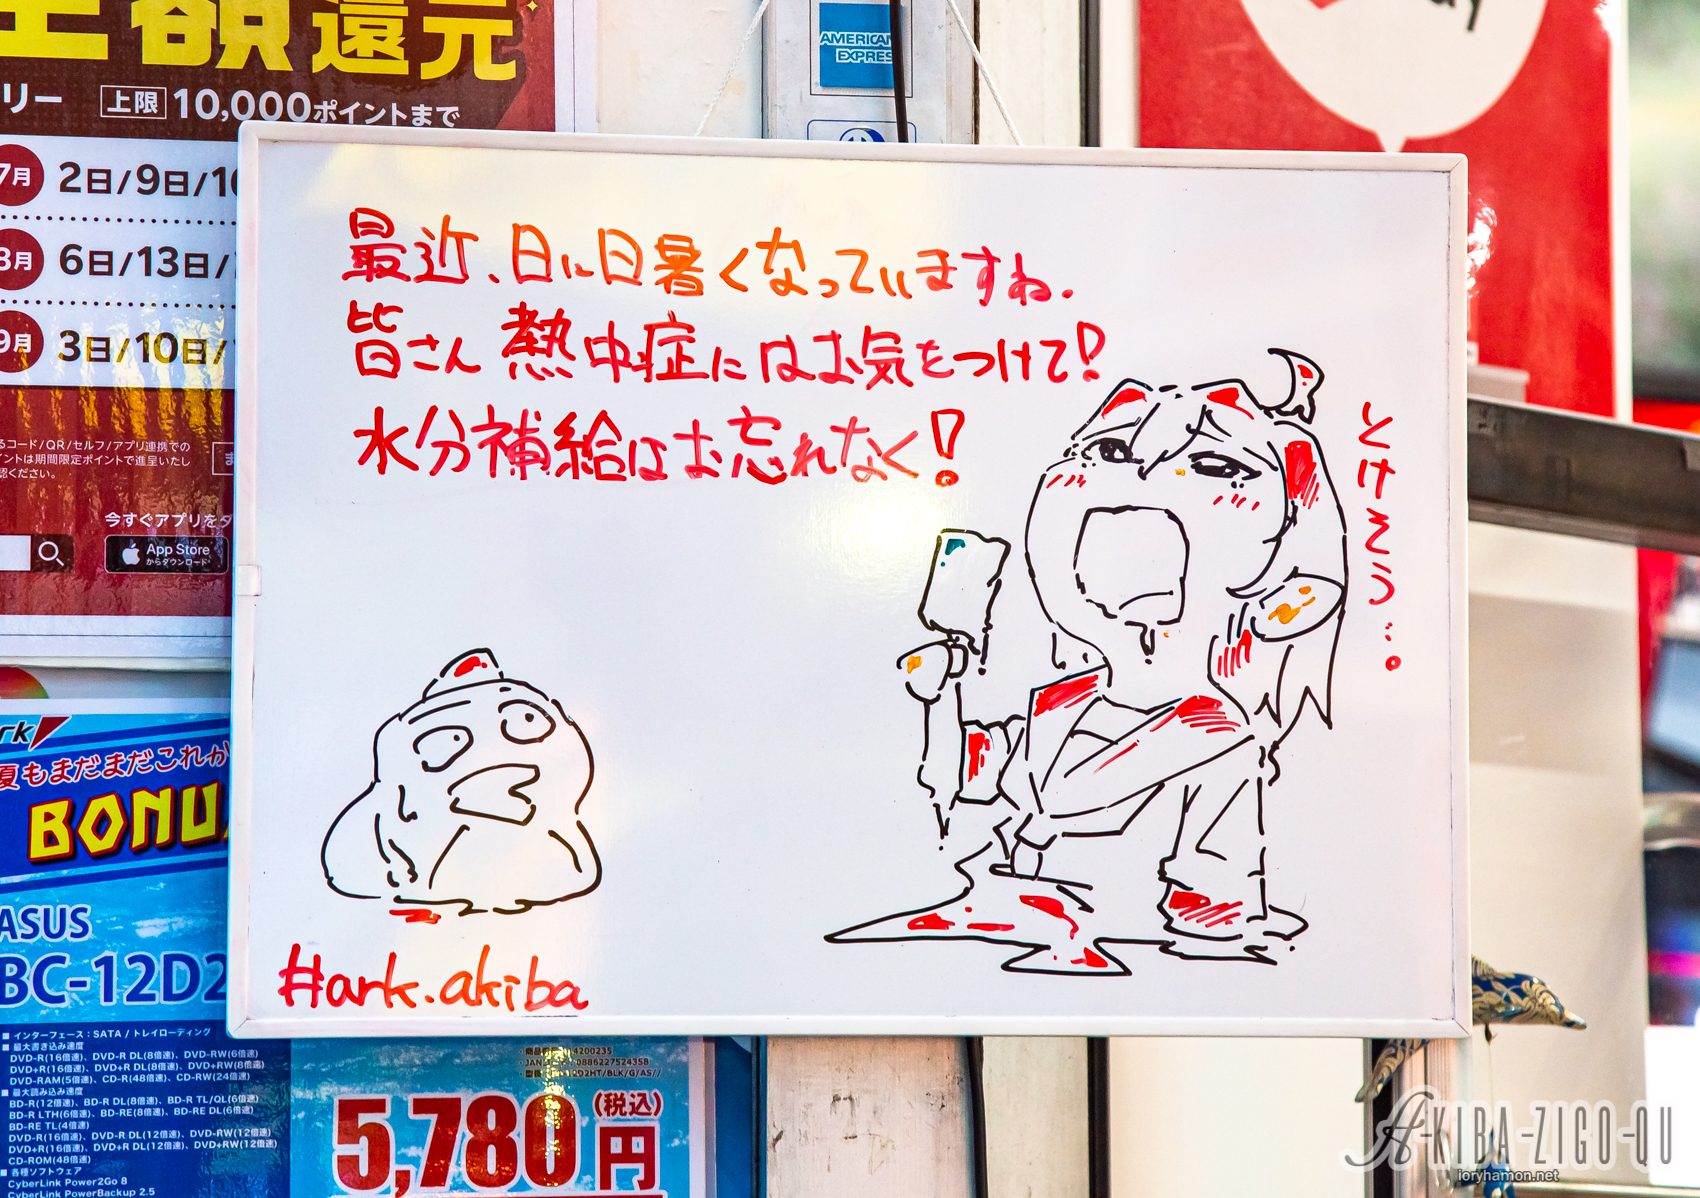 全額還元
リー 上限 10,000ポイントまで
7月 2日/9日/1
8月 6日/13日/
9月 3日/10日/
コード/QR/セルフ/アプリ連携での
イントは期間限定ポイントで進呈いたし
認ください。
今すぐアプリを
App Store
からダウンロード
AMERICAN
EXPRESS
最近、日に日暑くなっていますね.
皆さん熱中症にはお気をつけて!
水分補給はお忘れなく!
とけそう…。
#ark.akiba
ark
夏もまだまだこれか
BONU
ASUS
BC-12D2
■ インターフェース：SATA / トレイローディング
■ 最大書き込み速度
DVD-R(16倍速)、DVD-R DL(8倍速)、DVD-RW(6倍速)
DVD+R(16倍速)、DVD+R DL(8倍速)、DVD+RW(8倍速)
DVD-RAM(5倍速)、CD-R(48倍速)、CD-RW(24倍速)
■ 最大読み込み速度
BD-R(12倍速)、BD-R DL(8倍速)、BD-R TL/QL(6倍速)
BD-R LTH(6倍速)、BD-RE(8倍速)、BD-RE DL(6倍速)
BD-RE TL(4倍速)
DVD-R(16倍速)、DVD-R DL(12倍速)、DVD-RW(12倍速)
DVD+R(16倍速)、DVD+R DL(12倍速)、DVD+RW(12倍速)
CD-ROM(48倍速)
■ 各種ソフトウェア
CyberLink Power2Go 8
CyberLink PowerBackup 2.5
5,780円(税込)
AKIBA-ZIGO-QU
ioryhamon.net